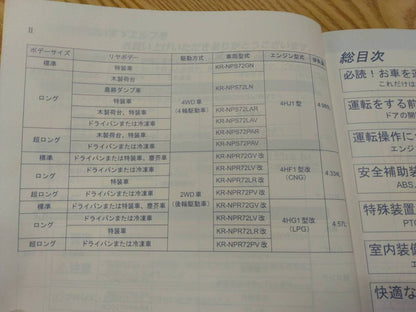 II
ボデーサイズ リヤボデー 駆動方式 車両型式 エンジン型式
標準 特装車 4WD車（4輪駆動車） KR-NPS72GN 4HJ1型
ロング 木製荷台 KR-NPS72LN
特装車
木製荷台、特装車 KR-NPS72LAR
ドライバンまたは冷凍車 KR-NPS72LAV
超ロング 木製荷台、特装車 KR-NPS72PAR
ドライバンまたは冷凍車 KR-NPS72PAV
標準 ドライバンまたは特装車、塵芥車 2WD車（後輪駆動車） KR-NPR72GV改 4HF1型改（CNG） 4.33L
ロング ドライバンまたは冷凍車 KR-NPR72LV改
特装車 KR-NPR72LR改
超ロング ドライバンまたは冷凍車 KR-NPR72PV改
標準 ドライバンまたは特装車、塵芥車 KR-NPR72GV改 4HG1型改（LPG） 4.57L
ロング ドライバンまたは冷凍車 KR-NPR72LV改
特装車 KR-NPR72LR改
超ロング ドライバンまたは冷凍車 KR-NPR72PV改
総目次
必読！お車を
これだけは
運転をする前
ドアの開
運転操作に
エンジ
安全補助装
ABS
特殊装置
PTO
室内装備
快適な